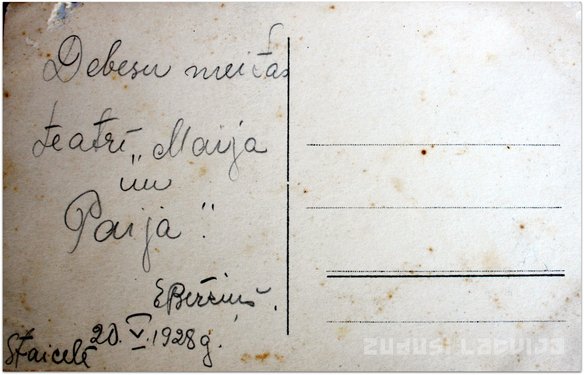 Debesu meitas
teatrī "Maija
un
Paija".
EBerziņš.
Staicelē 20.V.1928g.
zudusi latvija